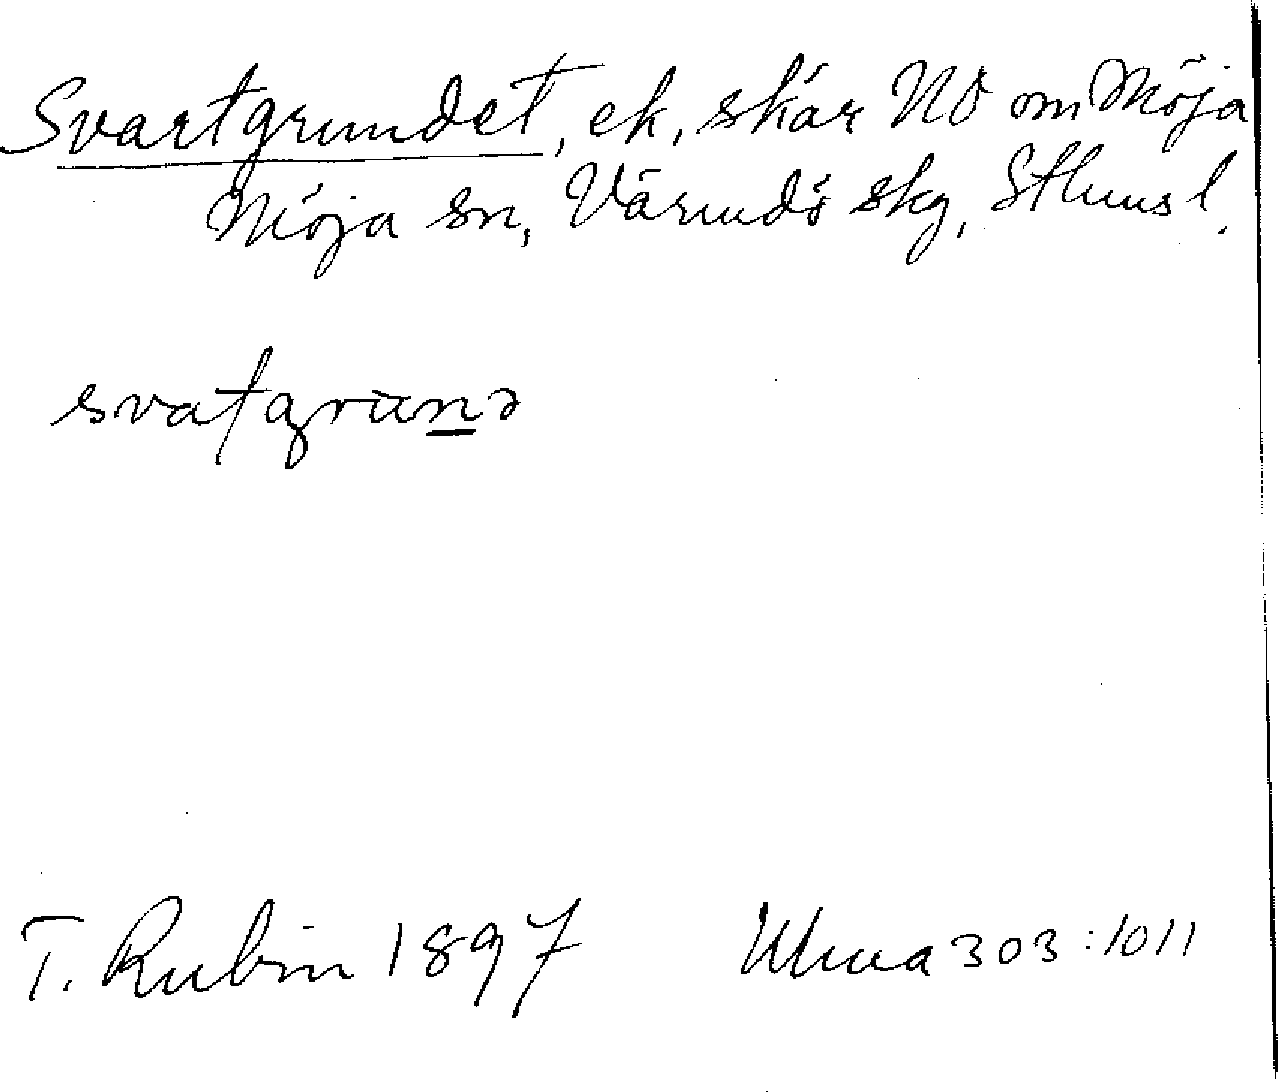 Svartgrundet, ek, skär NO om Möja
Möja sn, Värmdö skg, Sthms l.
svatgrunə
T. Rubin 1897 Uhwa 303:1011